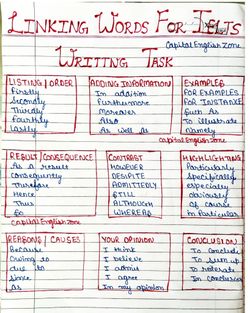 LINKING WORDS FOR IELTS
Capital English Zone
WRITING TASK
LISTING / ORDER
Firstly
Secondly
Thirdly
Fourthly
Lastly
ADDING INFORMATION
In addition
Furthermore
Moreover
Also
As well as
EXAMPLES
FOR EXAMPLES
FOR INSTANCE
Such As
To illustrate
Namely
Capital English Zone
RESULT / CONSEQUENCE
As a result
Consequently
Therefore
Hence
Thus
So
CONTRAST
HOWEVER
DESPITE
ADMITTEDLY
STILL
ALTHOUGH
WHEREAS
HIGHLIGHTING
Particularly
Specifically
especially
Obviously
Of course
In Particular
Capital English Zone
REASONS / CAUSES
Because
Owing to
due to
Since
As
YOUR OPINION
I think
I believe
I admit
I agree
In my opinion
CONCLUSION
To Conclude
To sum up
To
In Conclusion